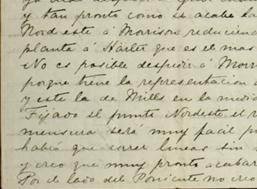 y tan pronto como se acabe la
Nordeste á Morrison reduciend
planta á Harler que es el mas
No es posible despedir á Morr
porque tiene la representacion
y este la de Mills en la medi
Fijado el punto Nordeste, el r
mensura será muy facil p
habrá que correr lineas sin
y creo que muy pronto acabar
Por el lado del Poniente no creo